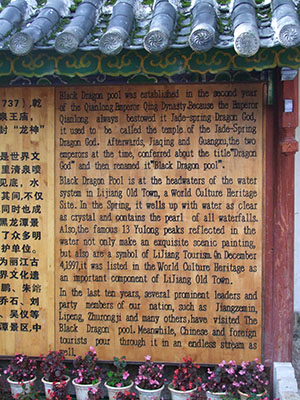 737)，乾
泉王庙，
封“龙神”
是世界文
里清泉喷
见底，水
其间，不仅
同时也成
黑龙潭景
了众多明
护单位。
为丽江古
世界文化遗
鹏、朱镕
乔石、刘
、吴仪等
潭景区，中
Black Dragon pool was established in the second year
of the Qianlong Emperor Qing Dynasty.Because the Emperor
Qianlong always bestowed it Jade-spring Dragon God,
it used to be called the temple of the Jade-Spring
Dragon God. Afterwards, Jiaqing and Guangxu,the two
emperors at the time, conferred about the title"Dragon
God" and then renamed it"Black Dragon pool".
Black Dragon Pool is at the headwaters of the water
system in Lijiang Old Town, a World Culture Heritage
Site. In the Spring, it wells up with water as clear
as crystal and contains the pearl of all waterfalls.
Also,the famous 13 Yulong peaks reflected in the
water not only make an exquisite scenic painting,
but also are a symbol of LiJiang Tourism.On December
4,1997,it was listed in the World Culture Heritage as
an important component of LiJiang Old Town.
In the last ten years, several prominent leaders and
party members of our nation, such as Jiangzemin,
Lipeng, Zhurongji and many others,have visited The
Black Dragon pool.Meanwhile, Chinese and foreign
tourists pour through it in an endless stream as
well.